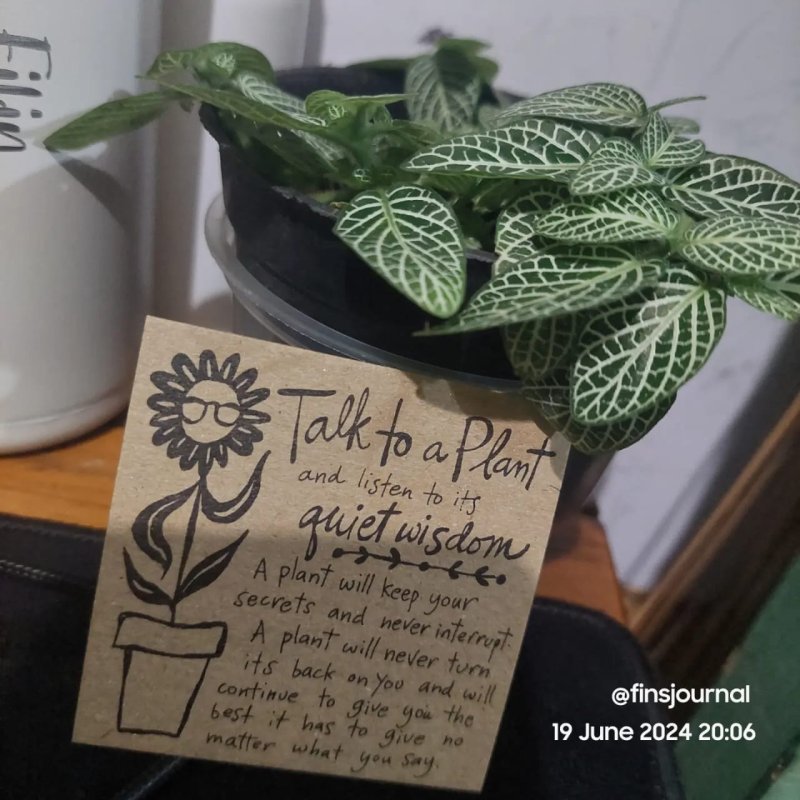 Filin
Talk to a Plant
and listen to its
quiet wisdom
A plant will keep your
secrets and never interrupt.
A plant will never turn
its back on you and will
continue to give you the
best it has to give no
matter what you say.
@finsjournal
19 June 2024 20:06